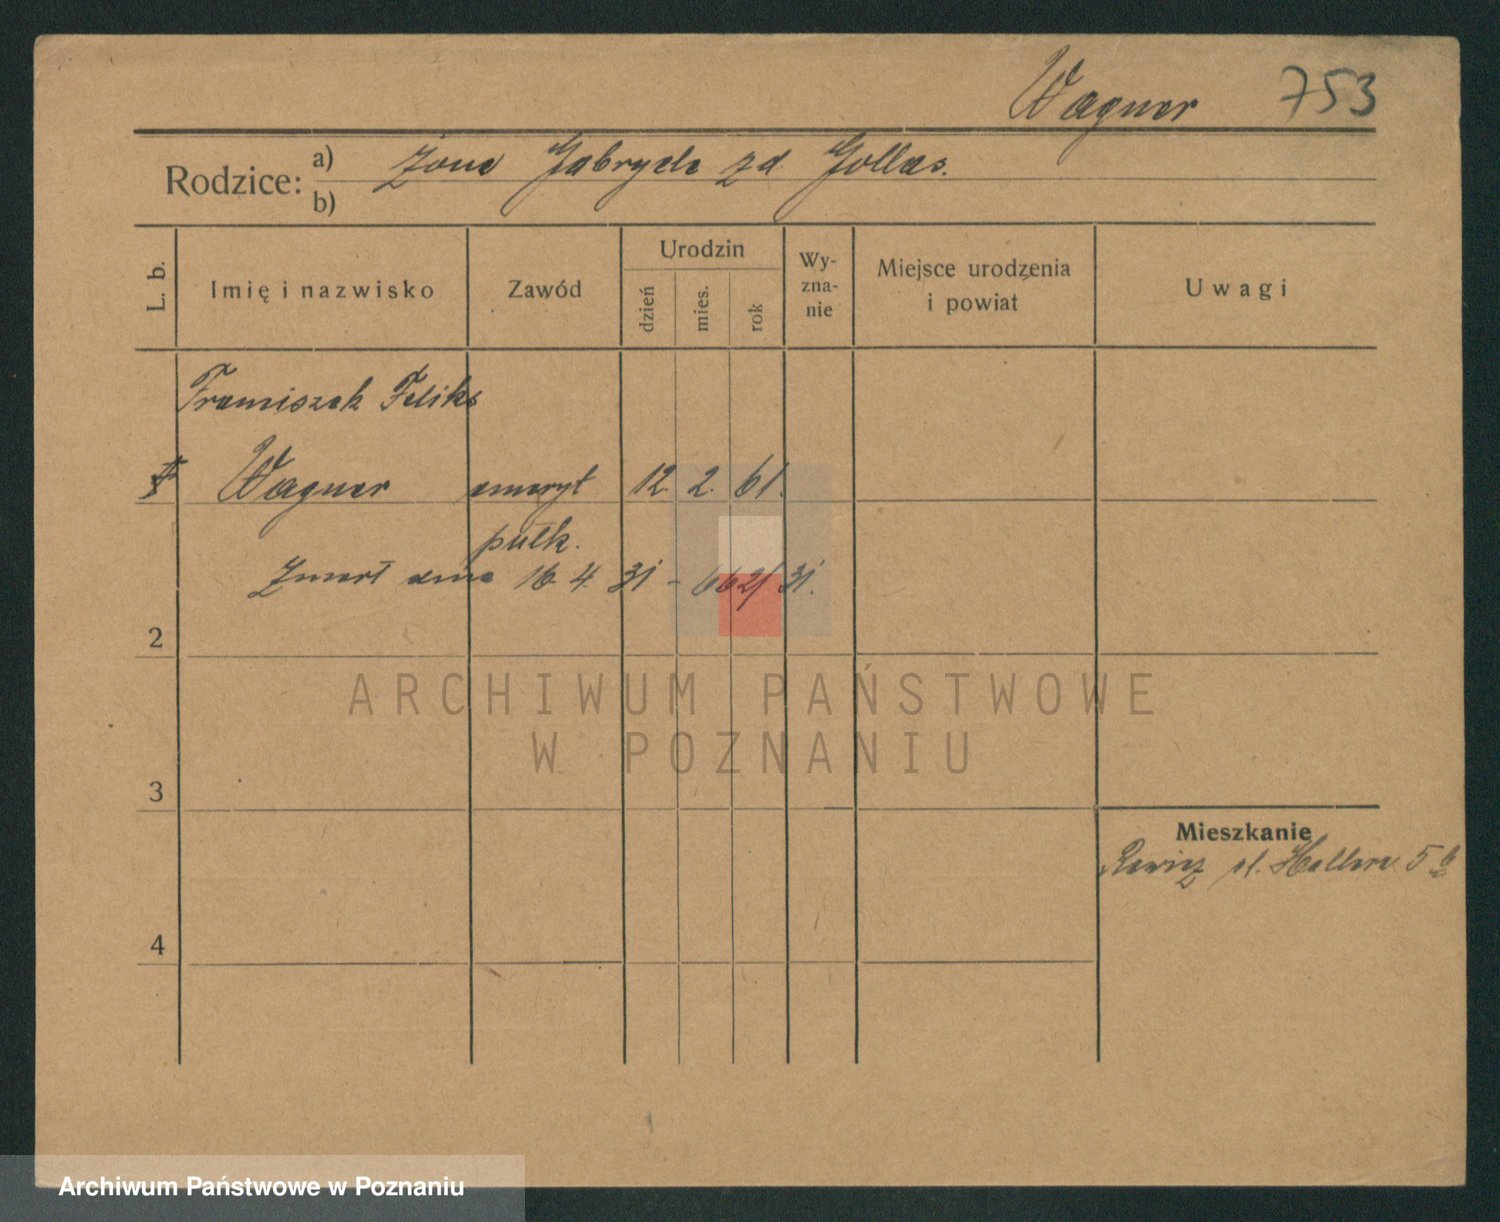 Wagner 753
Rodzice: a) żona Gabryela zd. Gollas.
b)
L. b.
Imię i nazwisko
Zawód
Urodzin
dzień
mies.
rok
Wy-
zna-
nie
Miejsce urodzenia
i powiat
Uwagi
Franciszek Feliks
Wagner emeryt 12. 2. 61.
pułk.
Zmarł dnia 16. 4. 31 - 662/31.
2
3
4
Mieszkanie
Rawicz ul. Hallera 5
ARCHIWUM PAŃSTWOWE
W POZNANIU
Archiwum Państwowe w Poznaniu